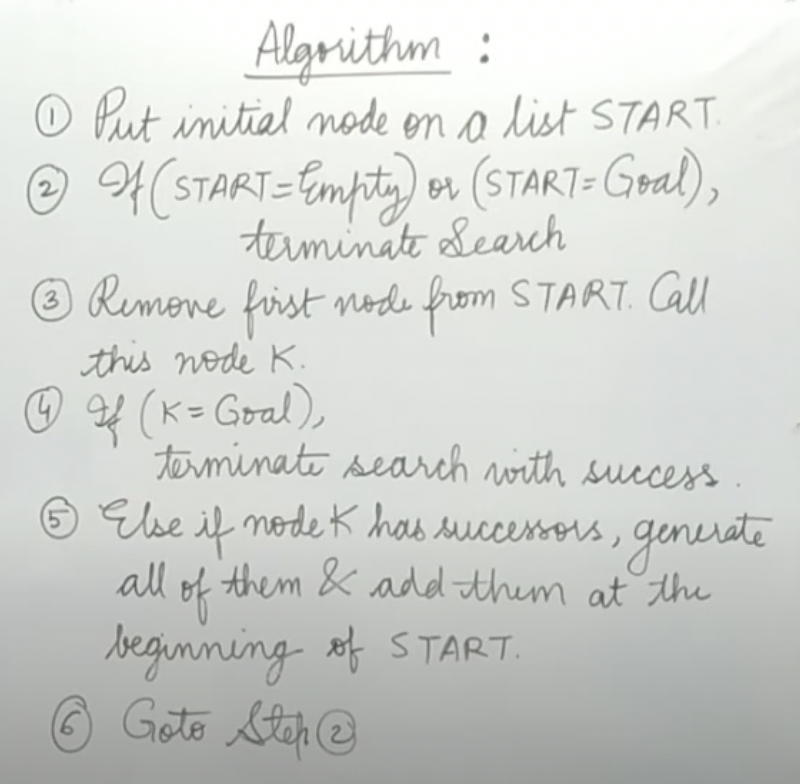 Algorithm :
① Put initial node on a list START.
② If (START=Empty) or (START=Goal),
terminate Search
③ Remove first node from START. Call
this node K.
④ If (K=Goal),
terminate search with success.
⑤ Else if node K has successors, generate
all of them & add them at the
beginning of START.
⑥ Goto Step ②